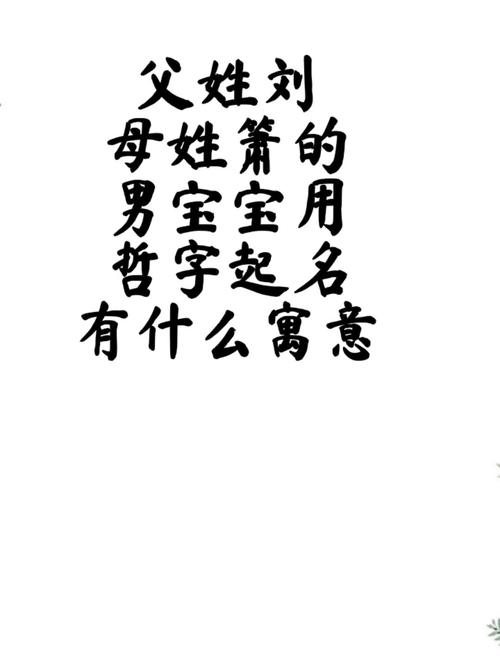 父姓刘
母姓箫的
男宝宝用
哲字起名
有什么寓意